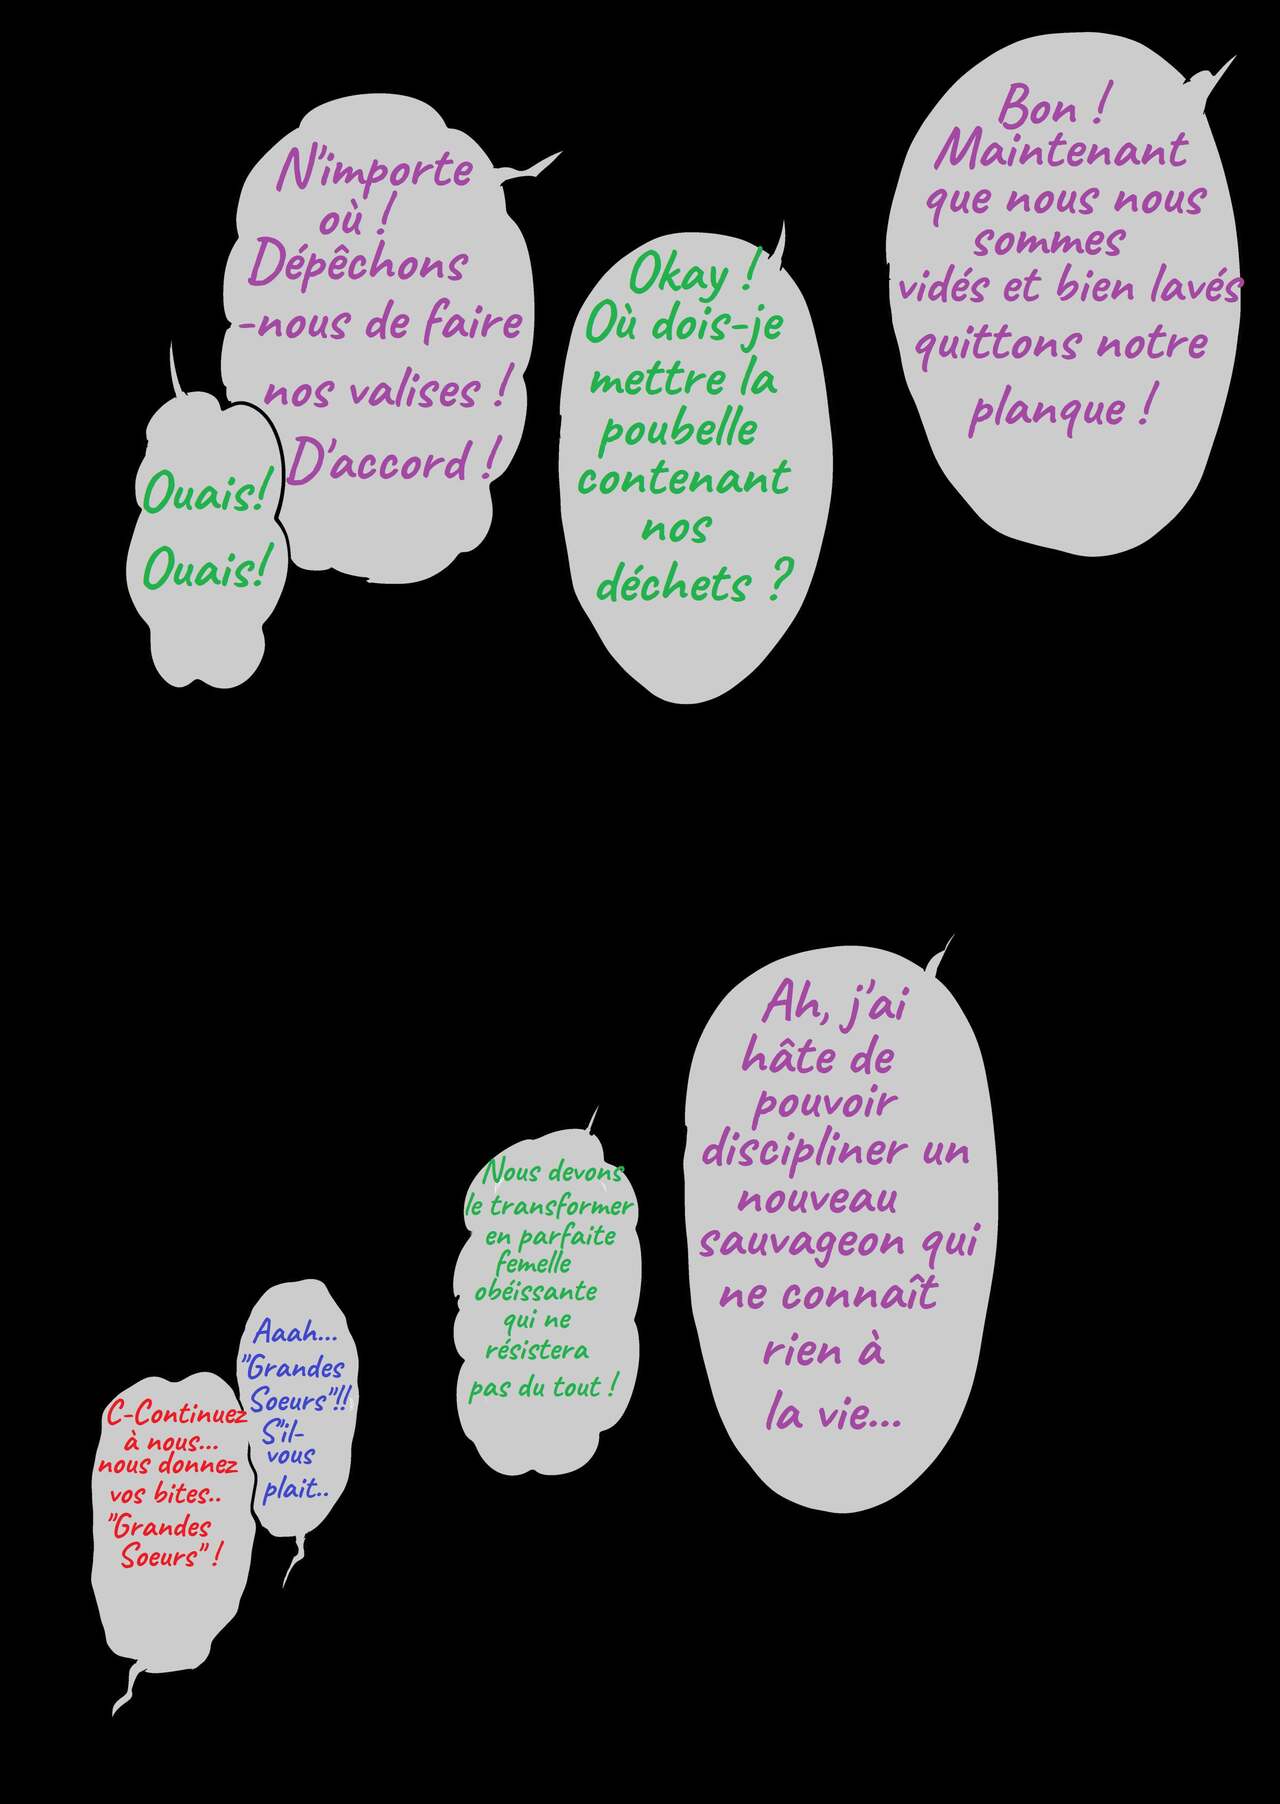 Bon !
Maintenant
que nous nous
sommes
vidés et bien lavés
quittons notre
planque !
Okay !
Où dois-je
mettre la
poubelle
contenant
nos
déchets ?
N'importe
où !
Dépêchons
-nous de faire
nos valises !
D'accord !
Ouais!
Ouais!
Ah, j'ai
hâte de
pouvoir
discipliner un
nouveau
sauvageon qui
ne connaît
rien à
la vie...
Nous devons
le transformer
en parfaite
femelle
obéissante
qui ne
résistera
pas du tout !
Aaah...
"Grandes
Soeurs"!!
S'il-
vous
plait..
C-Continuez
à nous...
nous donnez
vos bites..
"Grandes
Soeurs" !